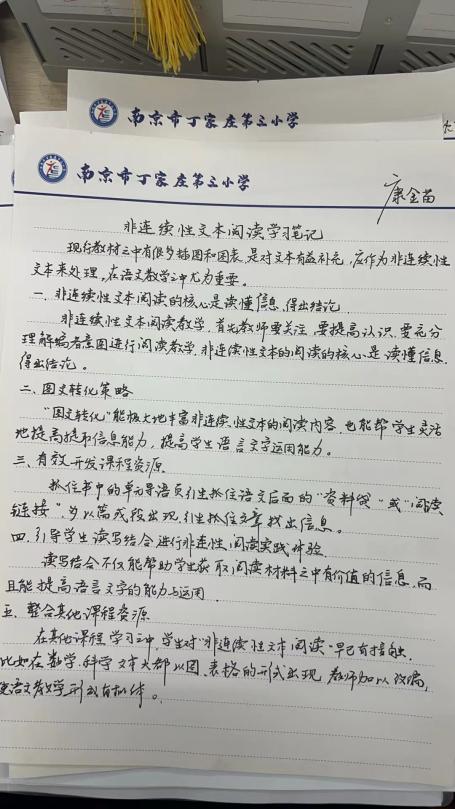 南京市丁家庄第三小学
南京市丁家庄第三小学
康金苗
非连续性文本阅读学习笔记
现行教材之中有很多插图和图表,是对文本有益补充,应作为非连续性
文本来处理,在语文教学之中尤为重要。
一、非连续性文本阅读的核心是读懂信息,得出结论
非连续性文本阅读教学,首先教师要关注,要提高认识,要充分
理解编者意图进行阅读教学,非连续性文本的阅读的核心是读懂信息,
得出结论。
二、图文转化策略
“图文转化”能极大地丰富非连续性文本的阅读内容,也能帮学生灵活
地提高提取信息能力,提高学生语言文字运用能力。
三、有效开发课程资源
抓住书中的单元导语页引生抓住语文后面的“资料袋”或“阅读
链接”,多以篇或段出现,引生抓住文章找出信息。
四、引导学生读写结合进行非连性阅读实践体验
读写结合不仅能帮助学生获取阅读材料之中有价值的信息,而
且能提高语言文字的能力与运用
五、整合其他课程资源
在其他课程学习之中,学生对“非连续性文本阅读”早已有接触,
比如在数学、科学文本大都以图、表格的形式出现,教师加以改编,
使语文教学形成有机体。